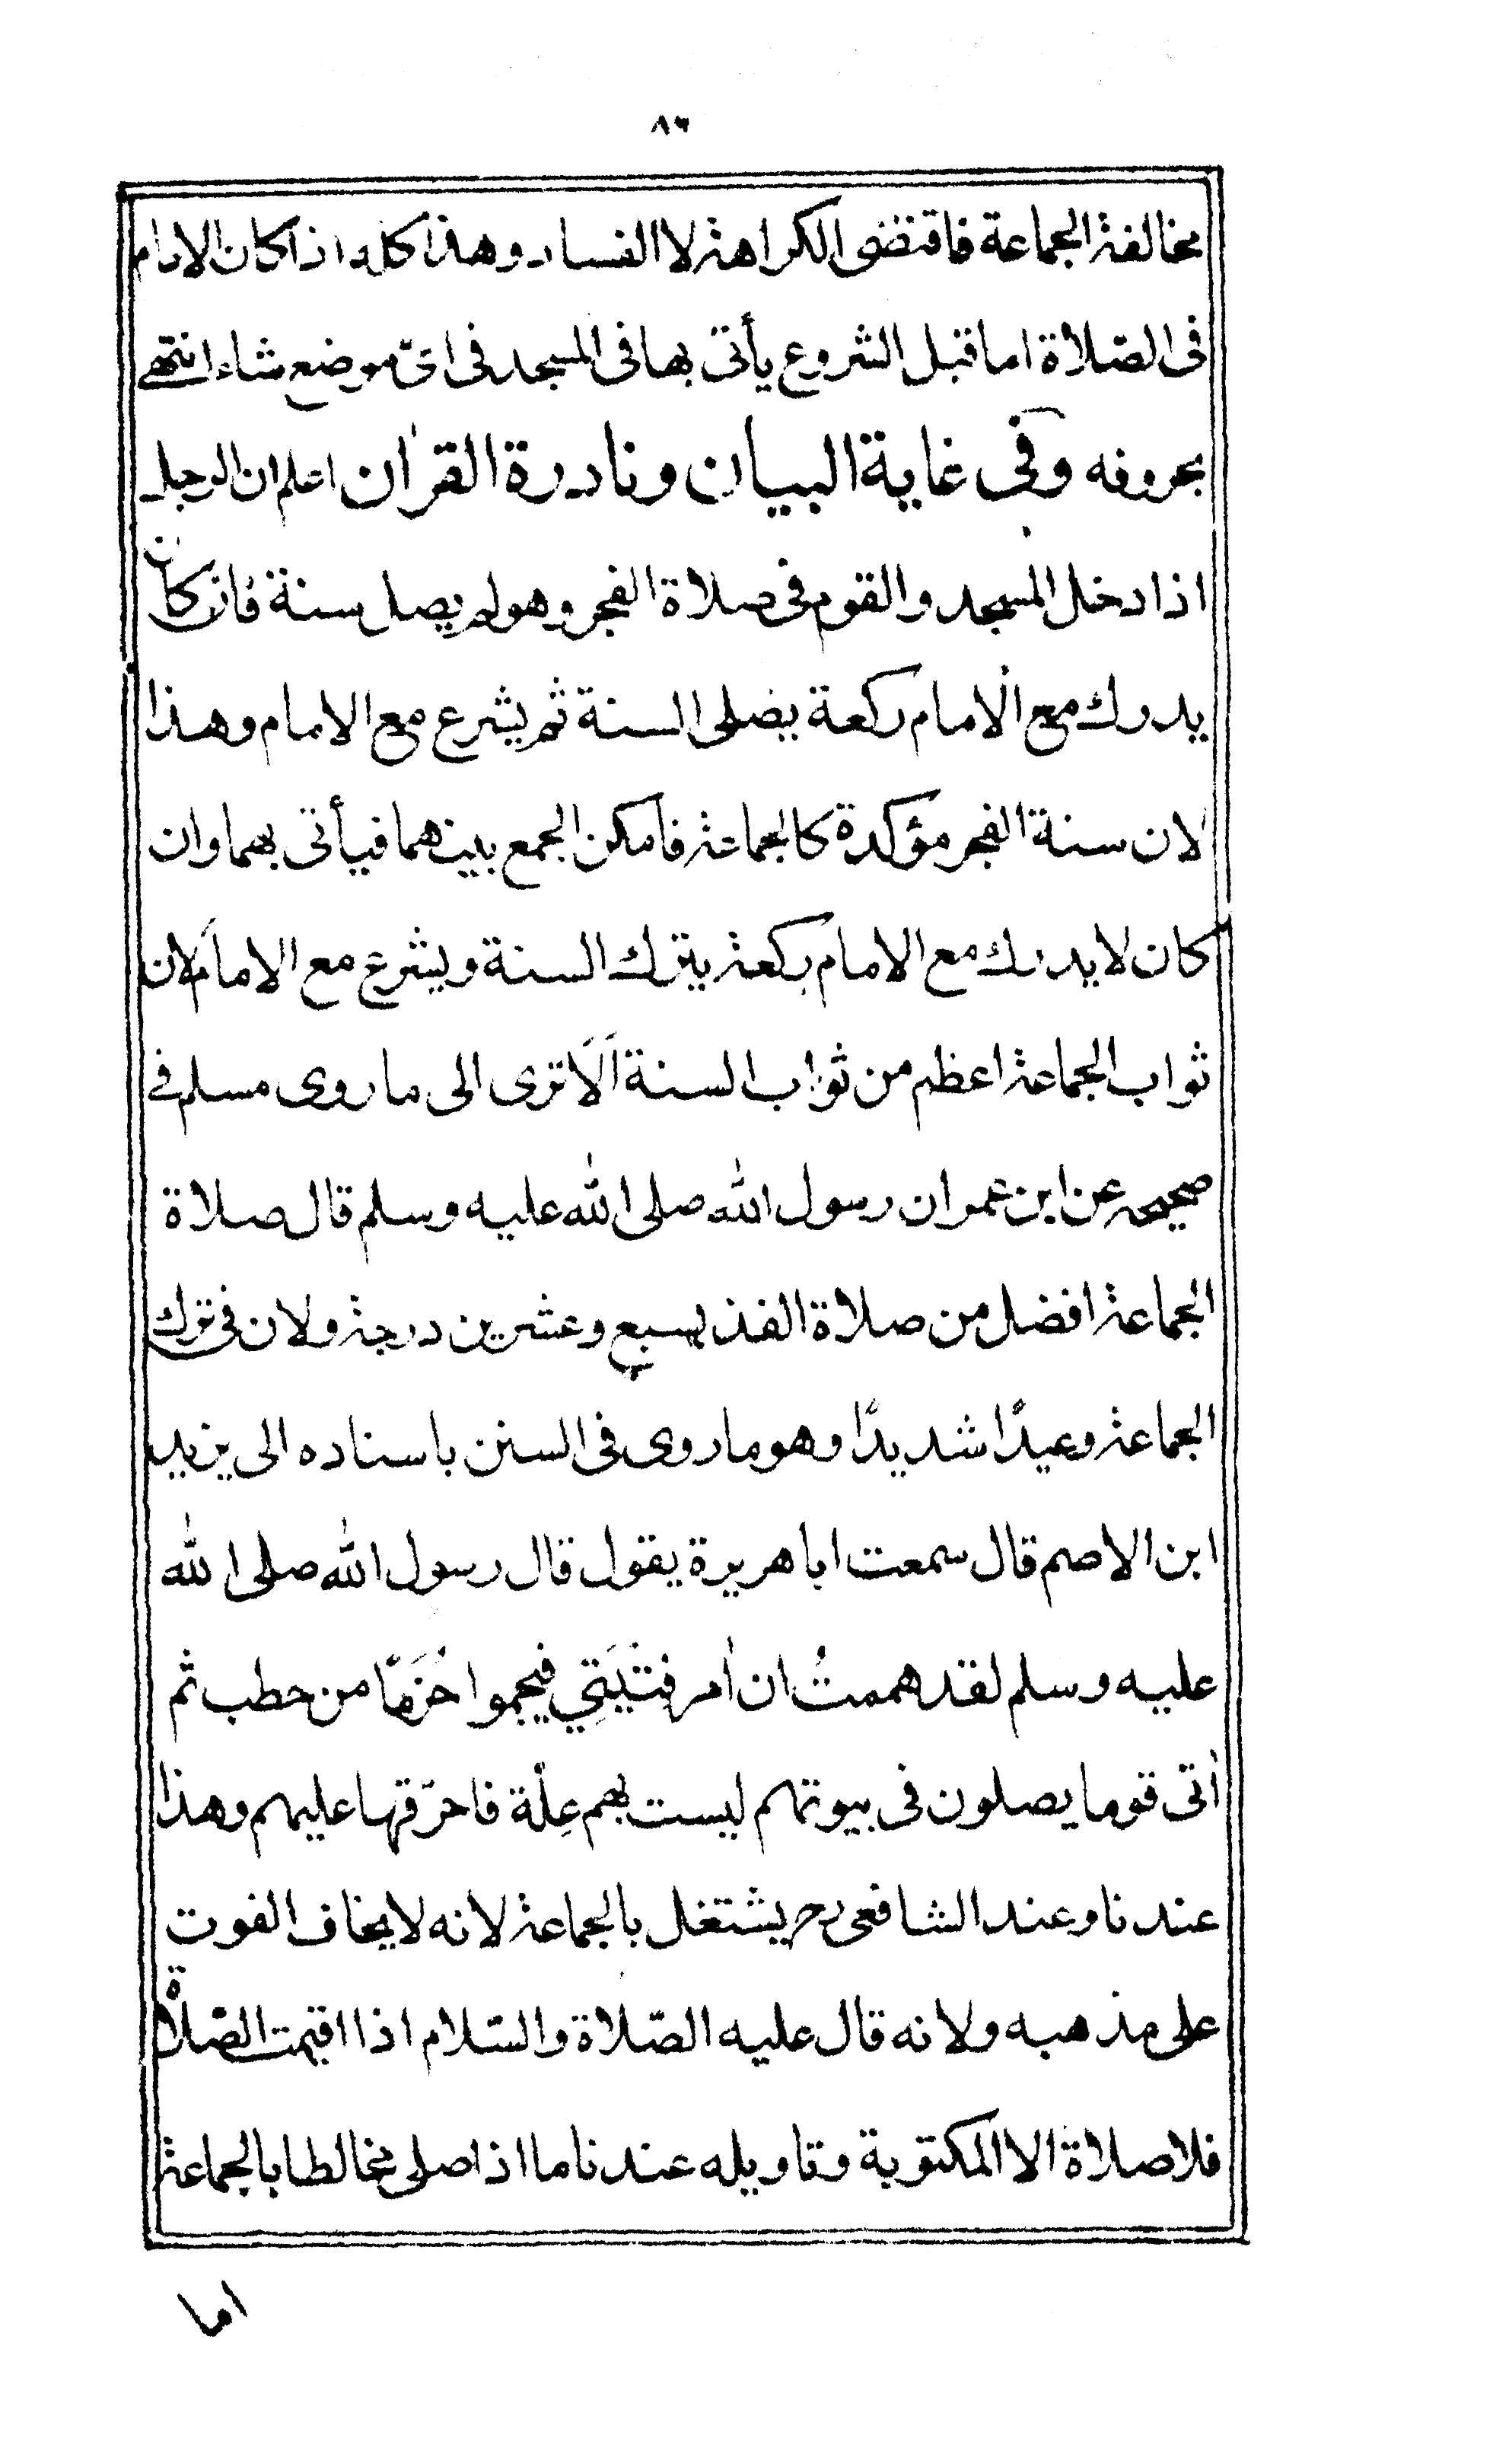 ٨٦
مخالفة الجماعة فاقتضى الكراهة لا الفساد وهذا كله اذا كان الامام
فى الصّلاة اما قبل الشروع يأتى بها فى المسجد فى اىّ موضع شاء انتهى
بحروفه وفى غاية البيان ونادرة القرأن اعلم ان الرجل
اذا دخل المسجد والقوم فى صلاة الفجر وهو لم يصل سنة فان كان
يدرك مع الامام ركعة يصلى السنة ثم يشرع مع الامام وهذا
لان سنة الفجر مؤكدة كالجماعة فامكن الجمع بينهما فيأتى بهما وان
كان لا يدرك مع الامام ركعة يترك السنة ويشرع مع الامام لان
ثواب الجماعة اعظم من ثواب السنة اَلَا ترى الى ما روى مسلم فى
صحيحه عن ابن عمر ان رسول الله صلى الله عليه وسلم قال صلاة
الجماعة افضل من صلاة الفذ بسبع وعشرين درجة ولان فى ترك
الجماعة وعيدًا شديدًا وهو ما روى فى السنن باسناده الى يزيد
ابن الاصم قال سمعت ابا هريرة يقول قال رسول الله صلى الله
عليه وسلم لقد هممتُ ان اٰمر فتيَتِي فيجمعوا حُزَمًا من حطب ثم
اٰتى قوما يصلون فى بيوتهم ليست بهم عِلّة فاحرّقها عليهم وهذا
عندنا وعند الشافعى رح يشتغل بالجماعة لانه لا يخاف الفوت
على مذهبه ولانه قال عليه الصّلاة والسّلام اذا اقيمت الصّلاة
فلا صلاة الا المكتوبة وتاويله عندنا ما اذا صلى مخالطا بالجماعة
اما